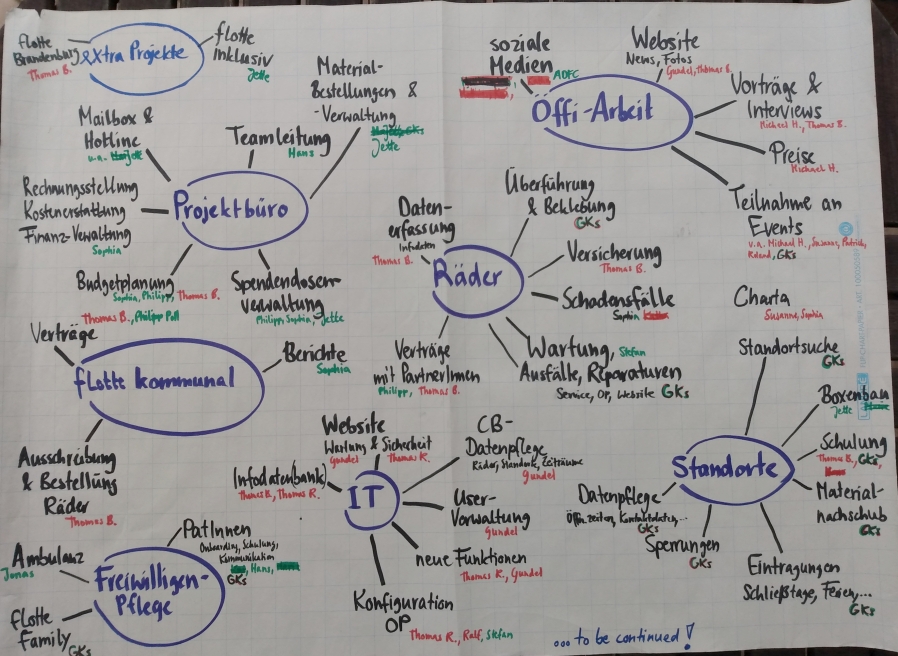 flotte
Brandenburg
Thomas B.
eXtra Projekte
flotte
Inklusiv
Jette
Mailbox &
Hotline
v.a.
Teamleitung
Hans
Material-
Bestellungen &
-Verwaltung
GKs
Jette
Rechnungsstellung
Kostenerstattung
Finanz-Verwaltung
Sophia
Projektbüro
Budgetplanung
Sophia, Philipp, Thomas B.
Spendendosen-
verwaltung
Philipp, Sophia, Jette
Thomas B., Philipp Poll
Verträge
flotte kommunal
Berichte
Sophia
Ausschreibung
& Bestellung
Räder
Thomas B.
Ambulanz
Jonas
Freiwilligen-
Pflege
PatInnen
Onboarding, Schulung,
Kommunikation
Hans,
GKs
flotte
Family
GKs
soziale
Medien
ADFC
Website
News, Fotos
Gundel, Thomas B.
Öffi-Arbeit
Vorträge &
Interviews
Michael H., Thomas B.
Preise
Michael H.
Teilnahme an
Events
v.a. Michael H., Susanne, Patrick,
Roland, GKs
Daten-
erfassung
Infodaten
Thomas B.
Überführung
& Beklebung
GKs
Räder
Versicherung
Thomas B.
Schadensfälle
Sophia
Verträge
mit PartnerInnen
Philipp, Thomas B.
Wartung, Stefan
Ausfälle, Reparaturen
Service, OP, Website GKs
Charta
Susanne, Sophia
Standortsuche
GKs
Boxenbau
Jette
Standorte
Schulung
Thomas B., GKs,
Material-
nachschub
GKs
Datenpflege
Öffn.zeiten, Kontaktdaten,...
GKs
Sperrungen
GKs
Eintragungen
Schließtage, Ferien,...
GKs
Website
Wartung & Sicherheit
Gundel Thomas K.
Infodaten(bank)
Thomas B., Thomas R.
IT
CB-
Datenpflege
Räder, Standorte, Zeiträume
Gundel
User-
Verwaltung
Gundel
neue Funktionen
Thomas K., Gundel
Konfiguration
OP
Thomas R., Ralf, Stefan
... to be continued!